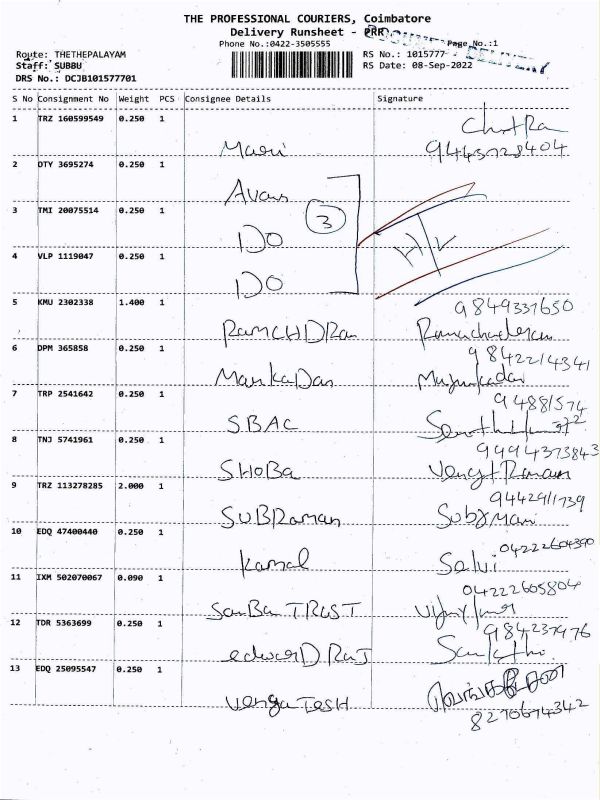 THE PROFESSIONAL COURIERS, Coimbatore
Delivery Runsheet - PRR
Phone No.:0422-3505555 Page No.:1
Route: THETHEPALAYAM RS No.: 1015777
Staff: SUBBU RS Date: 08-Sep-2022
DRS No.: DCJB101577701
S No Consignment No Weight PCS Consignee Details Signature
1 TRZ 160599549 0.250 1 Mani Chitra
9443728404
2 DTY 3695274 0.250 1
3 TMI 20075514 0.250 1 DO 3
4 VLP 1119047 0.250 1 DO
5 KMU 2302338 1.400 1 RAMCHDRan 9849337650
6 DPM 365858 0.250 1 ManikaDan 9842214341
7 TRP 2541642 0.250 1 SBAC 9488157472
8 TNJ 5741961 0.250 1 SHOBa 9494373843
9 TRZ 113278285 2.000 1 SUBRaman 9442911739
Subxmani
10 EDQ 47400440 0.250 1 Kamal Selvi 04222604390
11 IXM 502070067 0.090 1 SanBan TRUST 04222605804
12 TDR 5363699 0.250 1 edwarD RaJ 984237976
13 EDQ 25095547 0.250 1 vengaTesH
8270674342